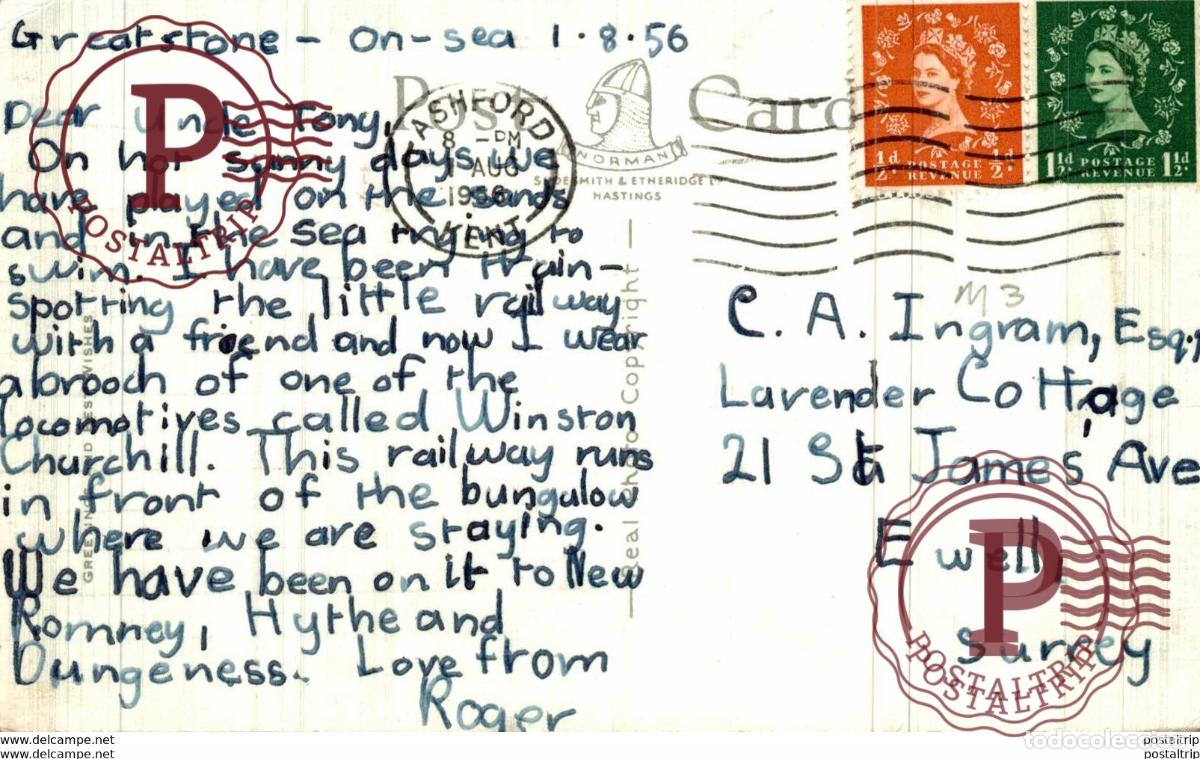 Greatstone - on-sea 1.8.56
Dear Uncle Tony,
On hot sunny days we
have played on the sands
and in the sea trying to
swim. I have been train-
spotting the little railway
with a friend and now I wear
a brooch of one of the
locomotives called Winston
Churchill. This railway runs
in front of the bungalow
where we are staying.
We have been on it to New
Romney, Hythe and
Dungeness. Love from
Roger
Post Card
NORMAN
SHOESMITH & ETHERIDGE LTD
HASTINGS
ASHFORD
8 - PM
1 AUG
1956
KENT
½d POSTAGE ½d
REVENUE
1½d POSTAGE 1½d
REVENUE
M3
C. A. Ingram, Esq.,
Lavender Cottage
21 St James' Ave
Ewell,
Surrey
Real Photo Copyright
GREETINGS AND BEST WISHES
P
POSTALTRIP
P
POSTALTRIP
POSTALTRIP
www.delcampe.net
www.delcampe.net
postaltrip
postaltrip